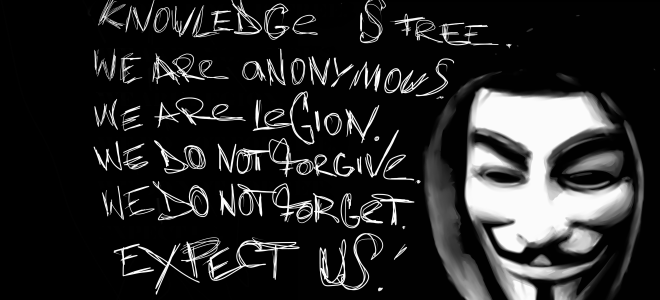 KNOWLEDGe IS FREE.
WE ARe aNONYMOUS.
WE ARe LeGION.
WE DO NOT FORGIVe.
WE DO NOT FORGeT.
EXPECT US!